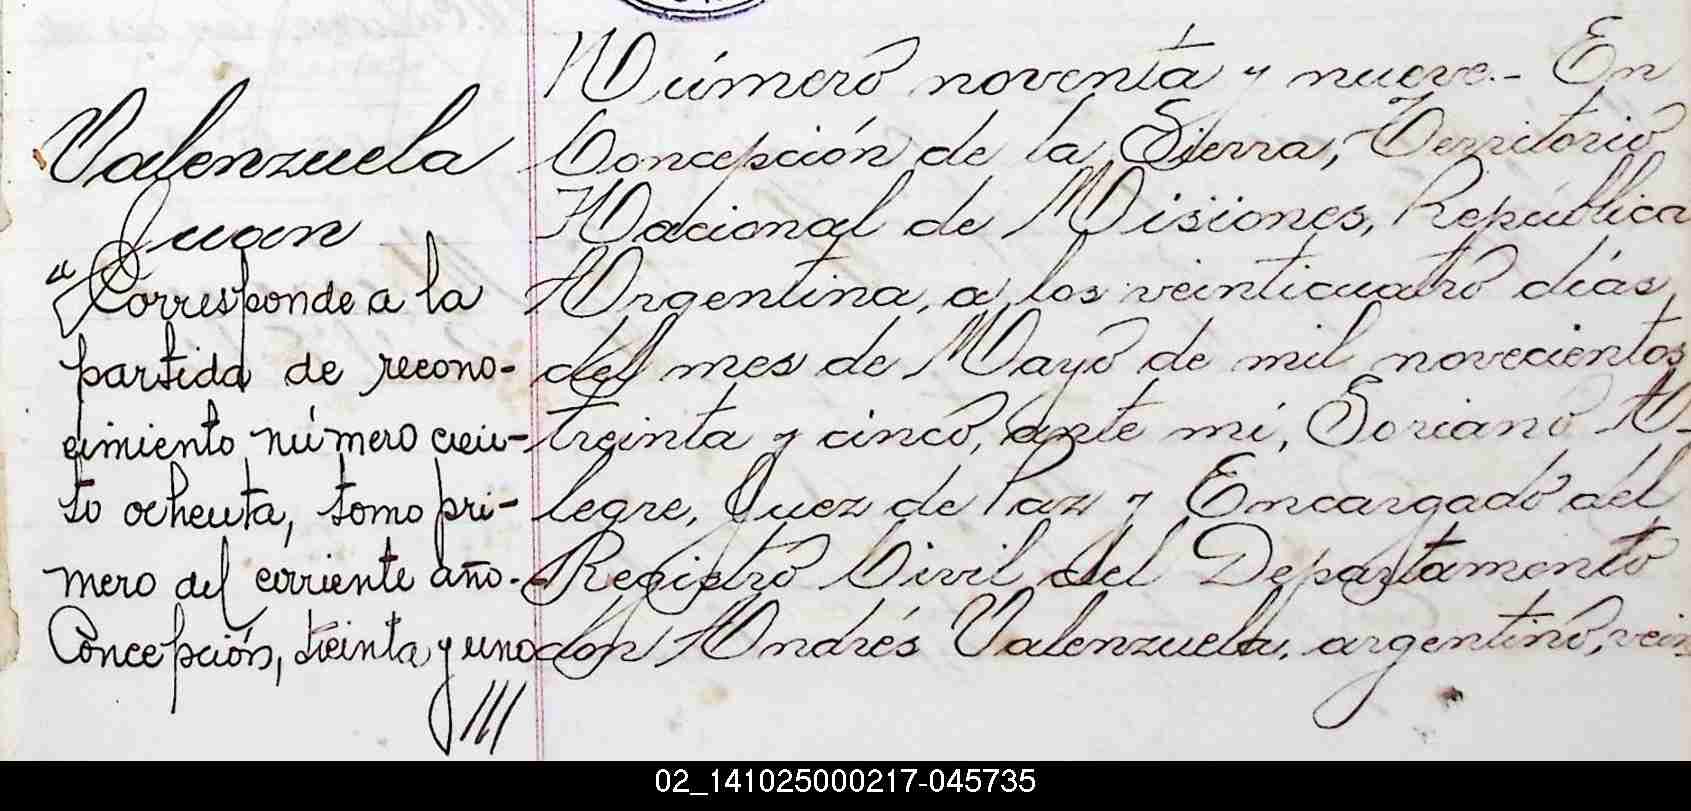 Valenzuela
Juan
"Corresponde a la
partida de recono-
cimiento número cien-
to ochenta, tomo pri-
mero del corriente año.-
Concepción, treinta y uno
///
Número noventa y nueve.- En
Concepción de la Sierra, Territorio
Nacional de Misiones, República
Argentina, a los veinticuatro días
del mes de Mayo de mil novecientos
treinta y cinco, ante mí, Soriano A-
legre, Juez de Paz y Encargado del
Registro Civil del Departamento
don Andrés Valenzuela, argentino, vein
02_141025000217-045735